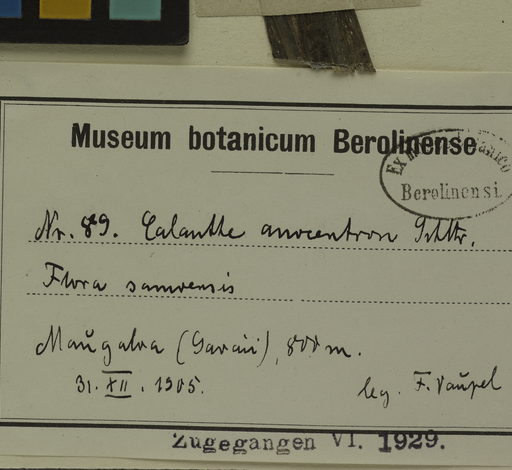 Museum botanicum Berolinense
Ex Museo botanico
Berolinensi.
Nr. 89. Calanthe anocentron Schltr.
Flora samoensis
Maŭgaloa (Savaii), 800 m.
31. XII. 1905.
leg. F. Vaŭpel
Zugegangen VI. 1929.